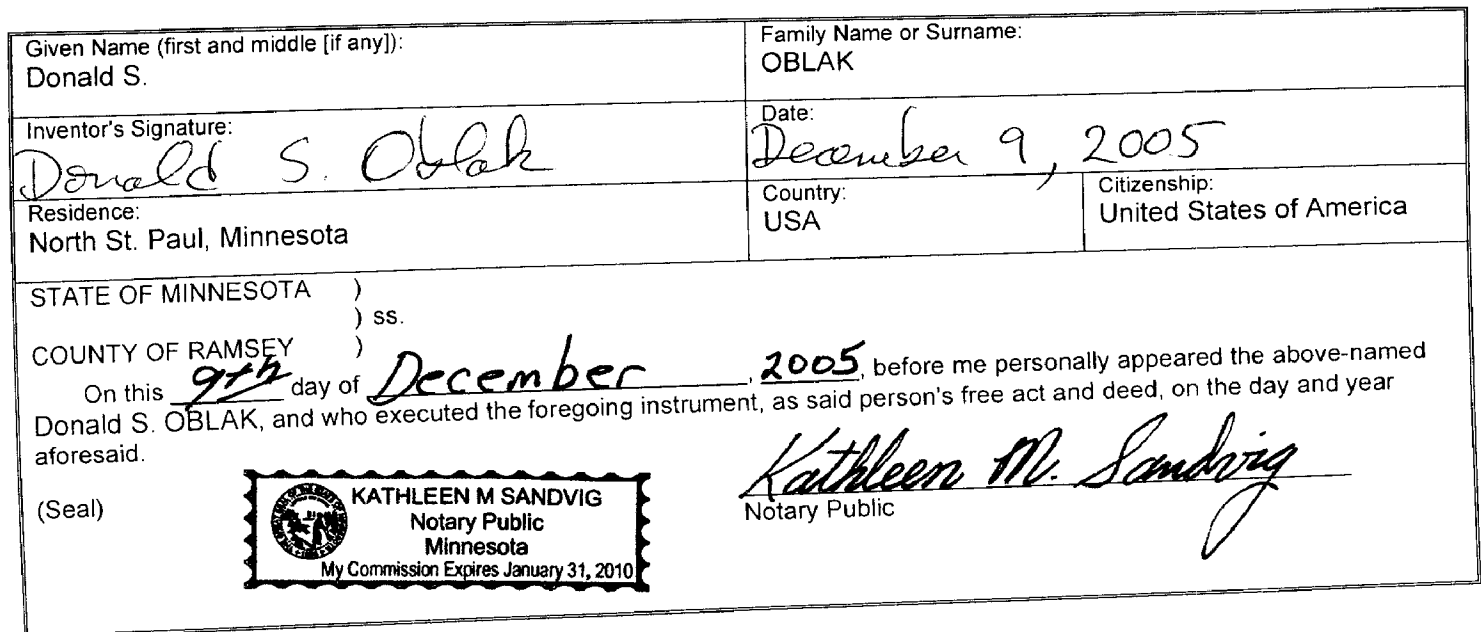 Given Name (first and middle [if any]):
Donald S.
Family Name or Surname:
OBLAK
Inventor's Signature:
Donald S. Oblak
Date:
December 9, 2005
Residence:
North St. Paul, Minnesota
Country:
USA
Citizenship:
United States of America
STATE OF MINNESOTA )
) ss.
COUNTY OF RAMSEY )
On this 9th day of December, 2005, before me personally appeared the above-named
Donald S. OBLAK, and who executed the foregoing instrument, as said person's free act and deed, on the day and year
aforesaid.
(Seal)
KATHLEEN M SANDVIG
Notary Public
Minnesota
My Commission Expires January 31, 2010
Kathleen M. Sandvig
Notary Public